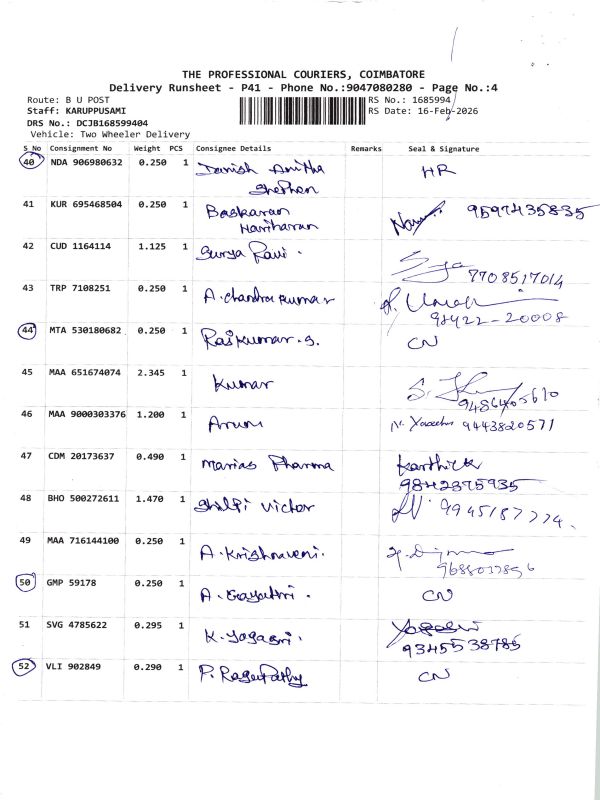 THE PROFESSIONAL COURIERS, COIMBATORE
Delivery Runsheet - P41 - Phone No.:9047080280 - Page No.:4
Route: B U POST RS No.: 1685994
Staff: KARUPPUSAMI RS Date: 16-Feb-2026
DRS No.: DCJB168599404
Vehicle: Two Wheeler Delivery
S_No Consignment No Weight PCS Consignee Details Remarks Seal & Signature
40 NDA 906980632 0.250 1 Danish Anitha HR
Stephen
41 KUR 695468504 0.250 1 Baskaran 9597435835
Hariharan
42 CUD 1164114 1.125 1 Surya Ravi.
7708517014
43 TRP 7108251 0.250 1 A. chandra kumar
98422-20008
44 MTA 530180682 0.250 1 Rajkumar.S. CN
45 MAA 651674074 2.345 1 Kumar
9486405610
46 MAA 9000303376 1.200 1 Arun 9443820571
47 CDM 20173637 0.490 1 Marias Pharma Karthick
9842375935
48 BHO 500272611 1.470 1 Shilpi Victor 9945187774.
49 MAA 716144100 0.250 1 A. Krishnaveni.
50 GMP 59178 0.250 1 A. Gayathri. CN
51 SVG 4785622 0.295 1 K. Yagasri.
9345538785
52 VLI 902849 0.290 1 P. Ragupathy CN